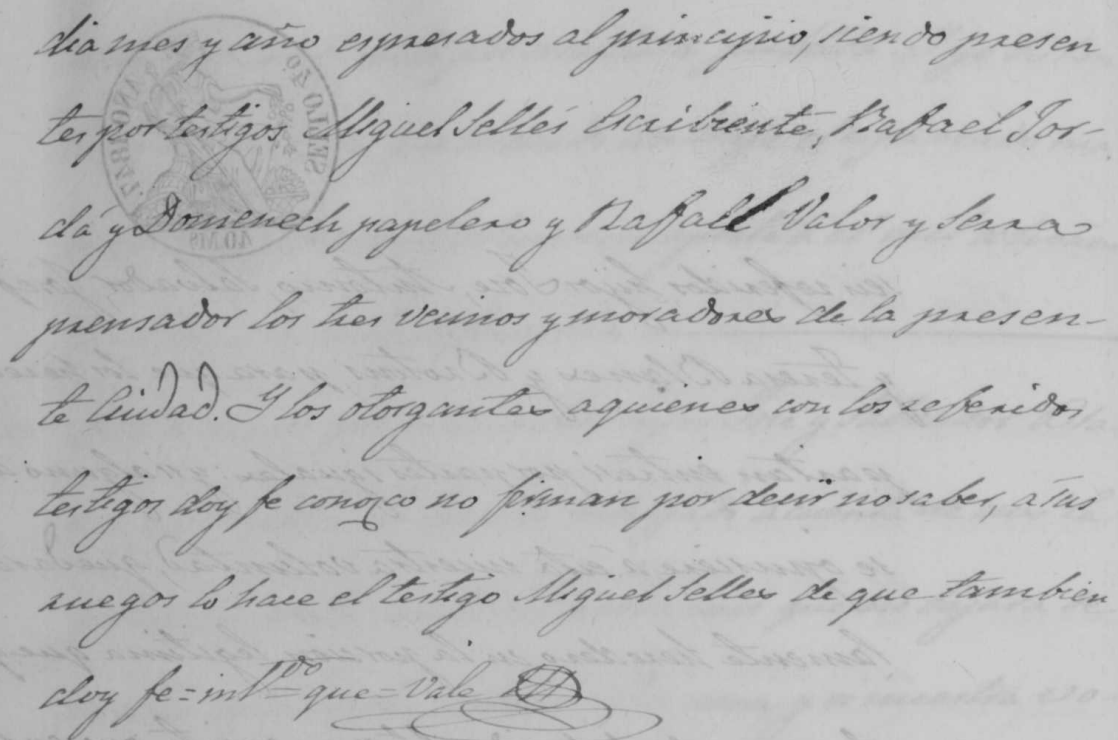 dia mes y año espresados al principio, siendo presen
tes por testigos Miguel Sellés Escribiente, Rafael Jor-
dá y Domenech papelero y Rafael Valor y Serra
prensador los tres vecinos y moradores de la presen-
te Ciudad. Y los otorgantes a quienes con los referidos
testigos doy fe conozco no firman por decir no saber, á sus
ruegos lo hace el testigo Miguel Selles de que tambien
doy fe = intdo = que = Vale